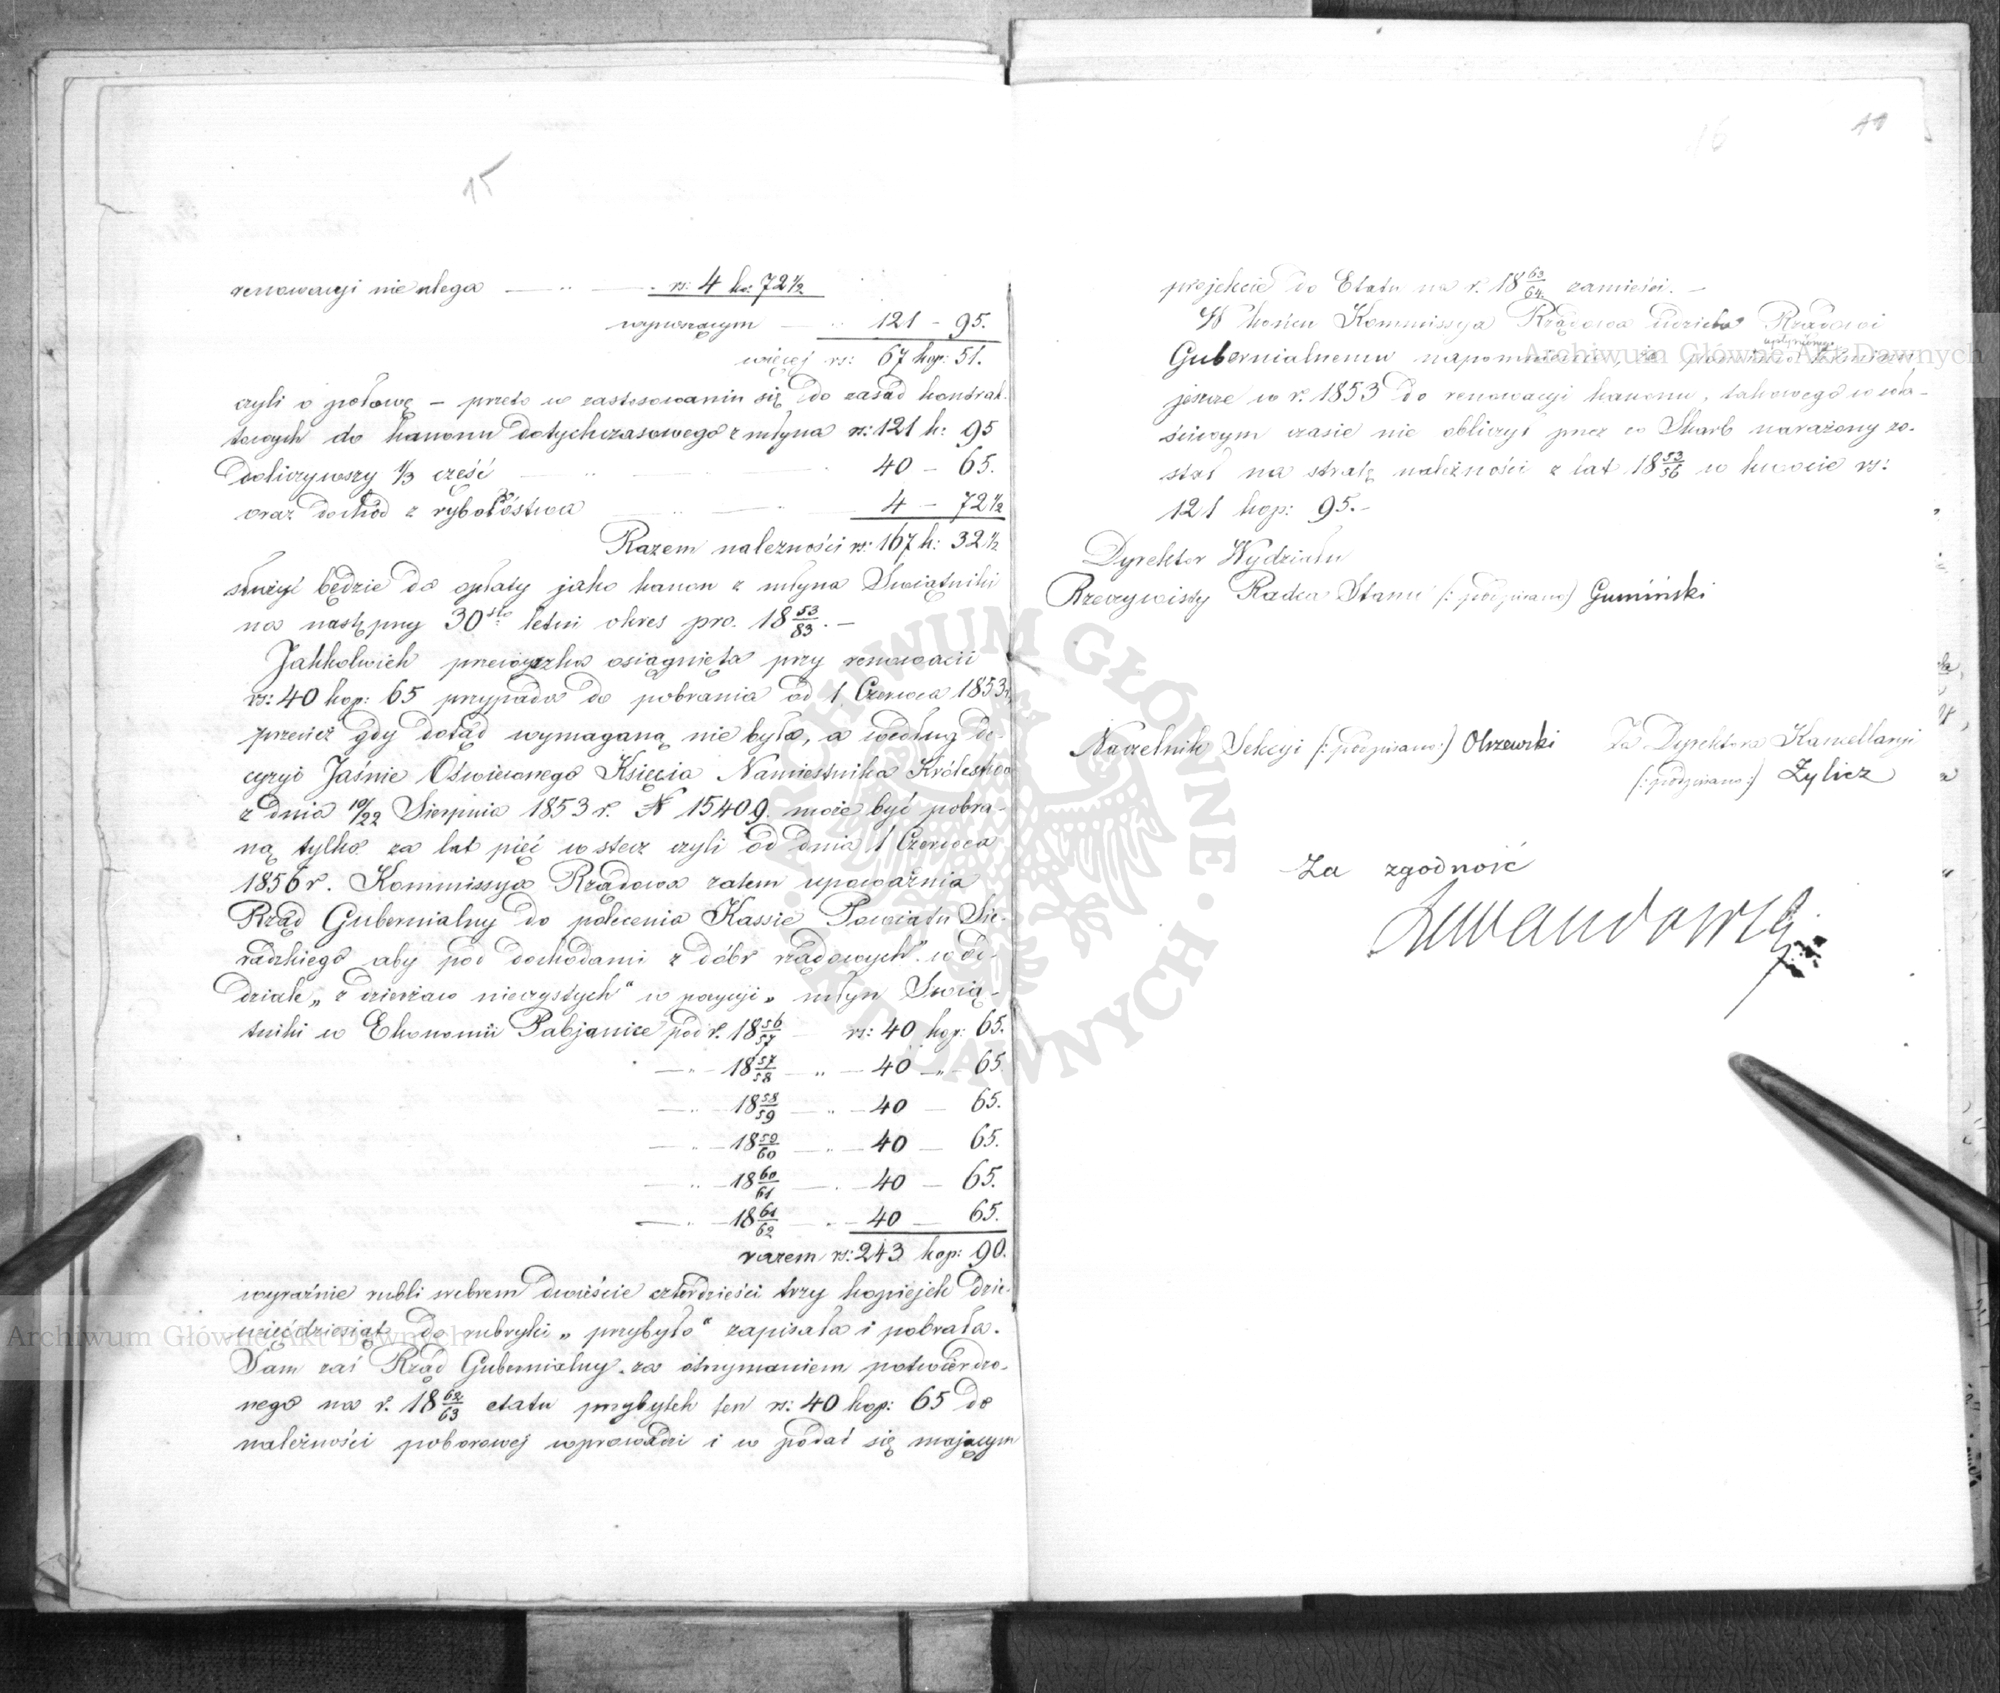 15
renowacyi nie ulega — „ — rs: 4 k: 72½
wynoszącym — „ 121 – 95.
więcej rs: 67 kop: 51.
czyli o połowę – przeto w zastosowaniu się do zasad kontrak-
towych do kanonu dotychczasowego z młyna rs: 121 k: 95
doliczywszy 1/3 część 40 – 65.
oraz dochód z rybołóstwa 4 – 72½
Razem należności rs: 167 k: 32½
służyć będzie do opłaty jako kanon z młyna Świątniki
na następny 30sto letni okres pro. 18 53/83. –
Jakkolwiek przewyżka osiągnięta przy renowacii
rs: 40 kop: 65 przypada do pobrania od 1 Czerwca 1853 r.
przecież gdy dotąd wymaganą nie była, a według de-
cyzyi Jaśnie Oświeconego Księcia Namiestnika Królestwa
z dnia 10/22 Sierpnia 1853 r. N 15409. może być pobra-
ną tylko za lat pięć wstecz czyli od dnia 1 Czerwca
1856 r. Kommissya Rządowa zatem upoważnia
Rząd Gubernialny do polecenia Kassie Powiatu Sie-
radzkiego aby pod dochodami z dóbr rządowych w od-
dziale „z dzierżaw wieczystych" w pozycyi „młyn Świą-
tniki w Ekonomii Pabjanice pod r. 18 56/57 – rs: 40 kop: 65.
— „ – 18 57/58 – „ – 40 – „ – 65
— „ – 18 58/59 – „ – 40 – 65.
— „ – 18 59/60 – „ – 40 – 65.
— „ – 18 60/61 – „ – 40 – 65.
— „ – 18 61/62 – „ – 40 – 65.
razem rs: 243 kop: 90.
wyraźnie rubli srebrem dwieście czterdzieści trzy kopiejek dzie-
więćdziesiąt do rubryki „przybyło" zapisała i pobrała.
Sam zaś Rząd Gubernialny za otrzymaniem potwierdzo-
nego na r. 18 62/63 etatu przybytek ten rs: 40 kop: 65 do
należności poborowej wprowadzi i w podać się mającym
16
11
projekcie do Etatu na r. 18 63/64 zamieści. –
W końcu Kommissya Rządowa udziela Rządowi
Gubernialnemu napomnienie, iż pomimo
upłynionego
jeszcze w r. 1853 do renowacyi kanonu, takowego w wła-
ściwym czasie nie obliczył przez co Skarb narażony zo-
stał na stratę należności z lat 18 53/56 w kwocie rs:
121 kop: 95. –
Dyrektor Wydziału
Rzeczywisty Radca Stanu (: podpisano) Gumiński
Naczelnik Sekcyi (: podpisano :) Olszewski
Za Dyrektora Kancellaryi
(: podpisano :) Żylicz
Za zgodność
Lewandowski
Archiwum Główne Akt Dawnych
Archiwum Główne Akt Dawnych
ARCHIWUM GŁÓWNE AKT DAWNYCH